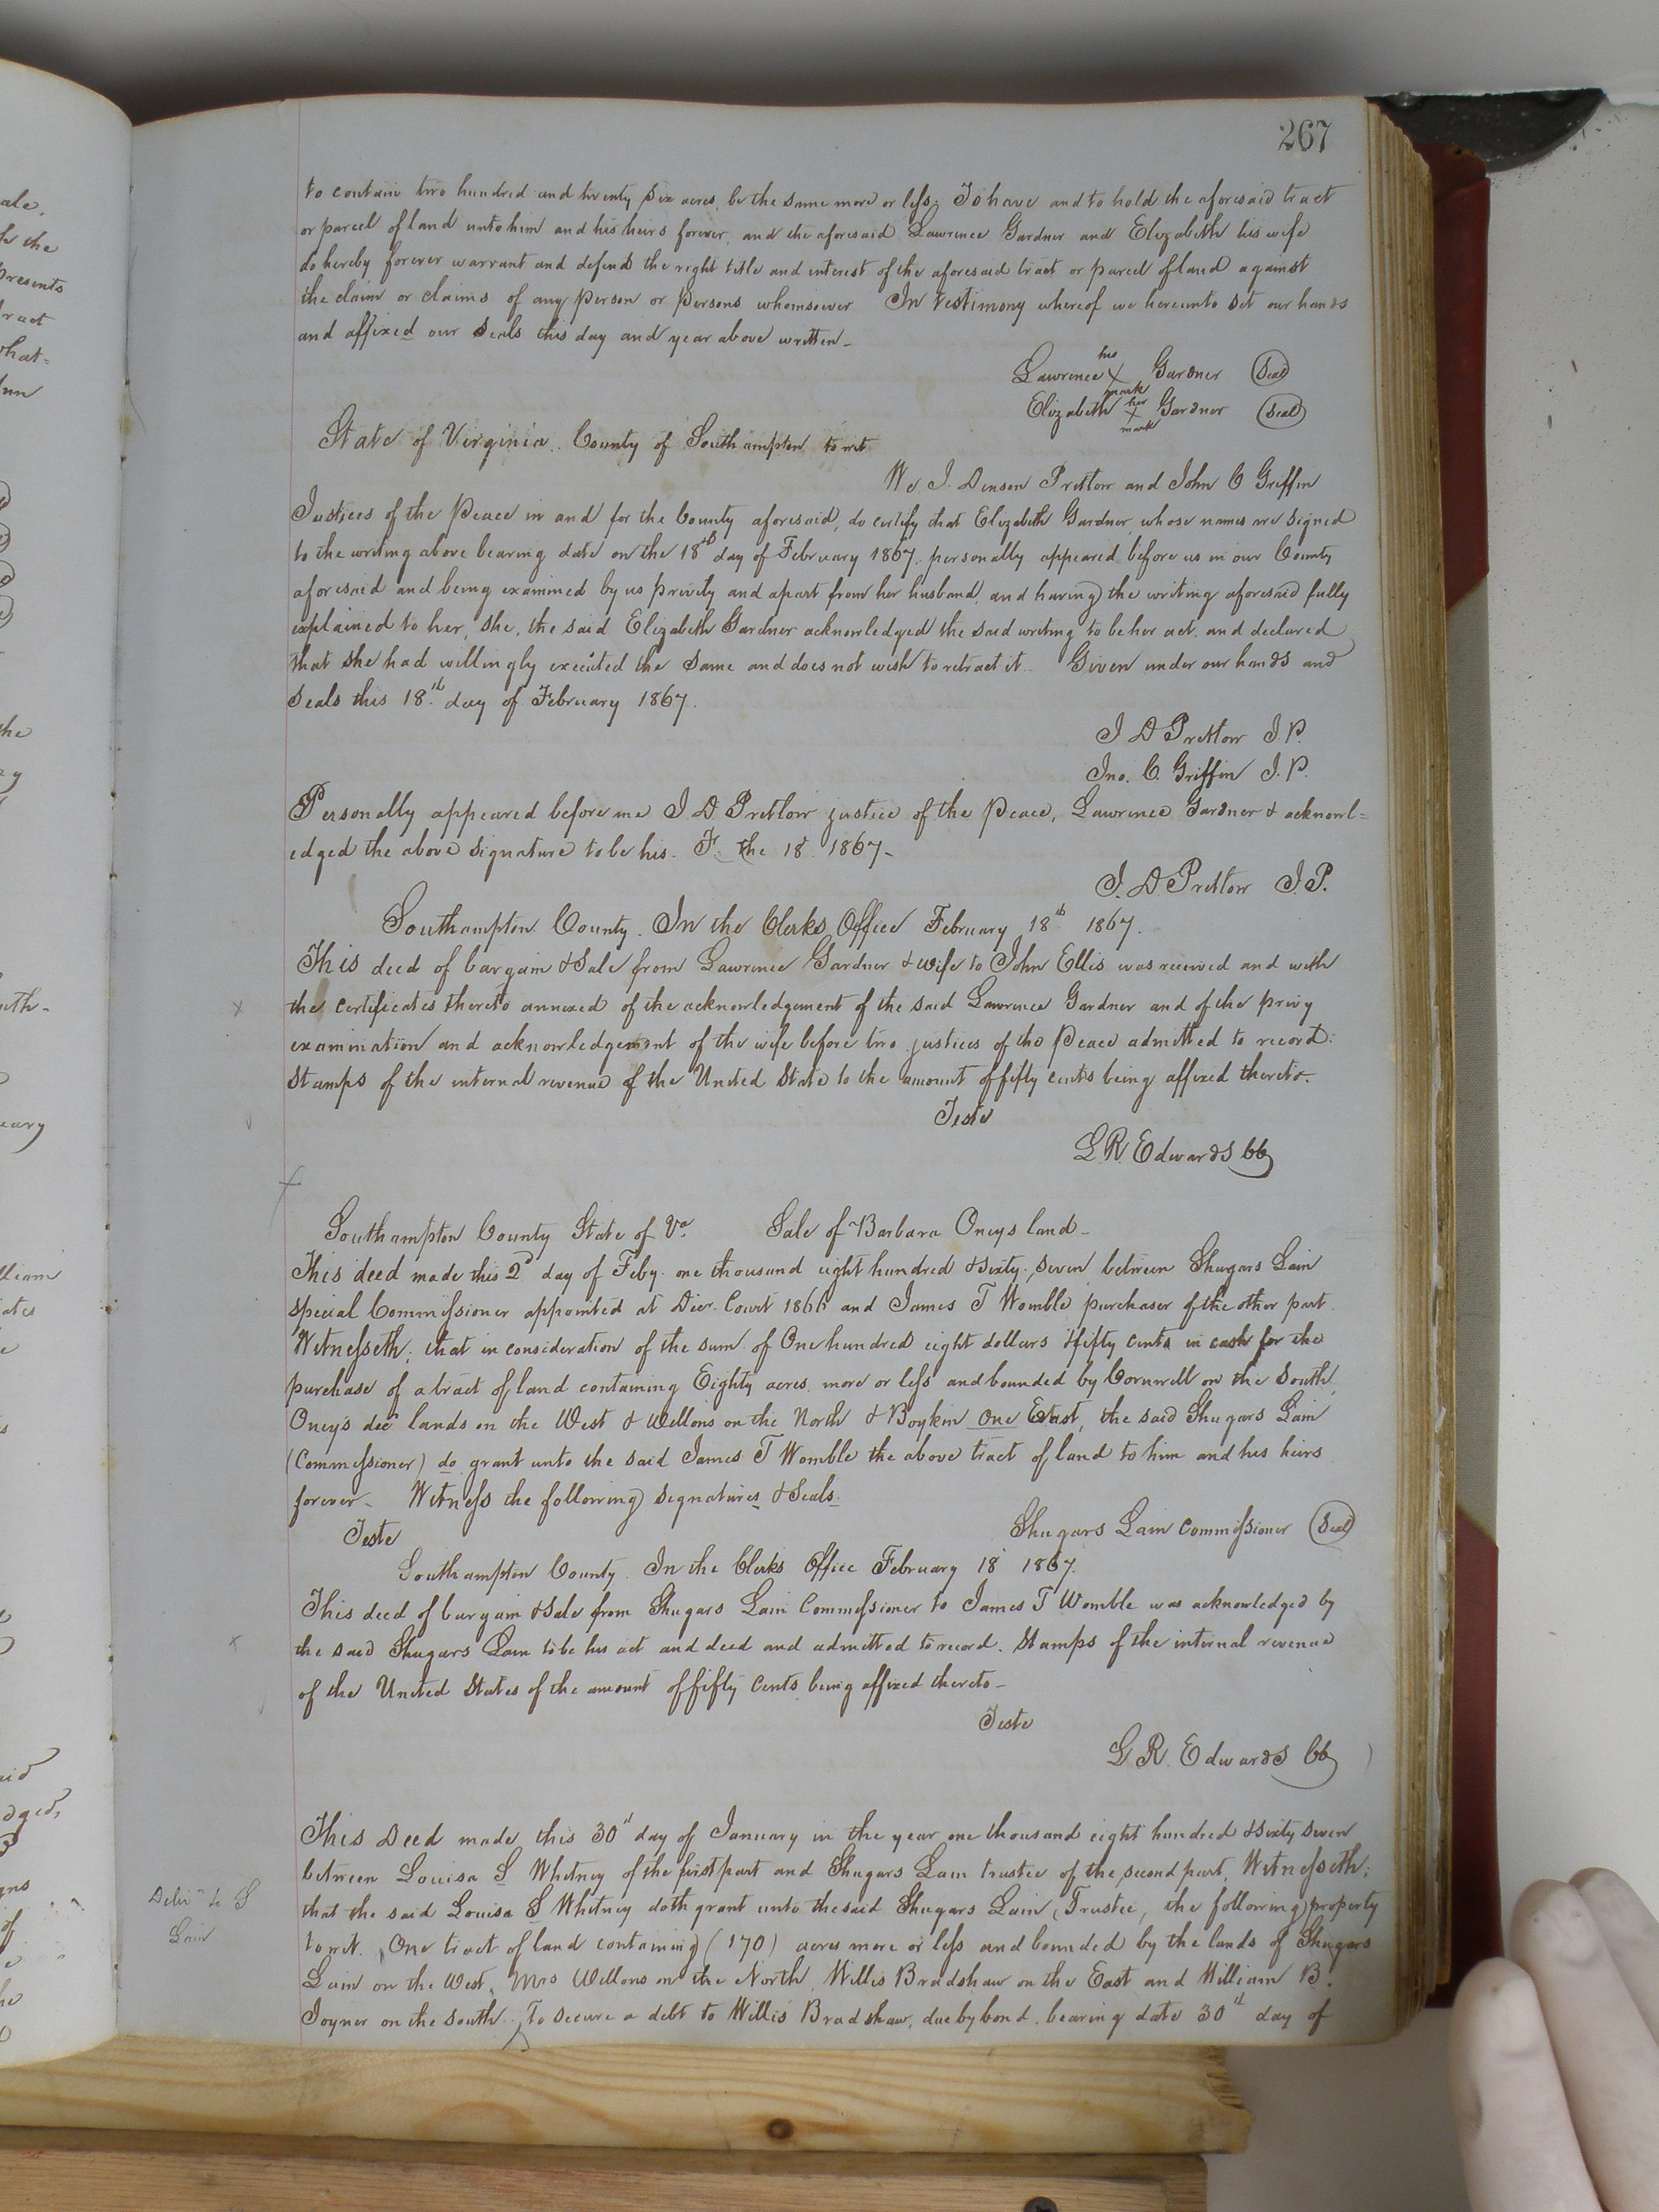 267
to contain two hundred and twenty six acres, be the same more or less; To have and to hold the aforesaid tract
or parcel of land unto him and his heirs forever, and the aforesaid Lawrence Gardner and Elizabeth his wife
do hereby forever warrant and defend the right title and interest of the aforesaid tract or parcel of land against
the claim or claims of any person or persons whomsoever In testimony whereof we hereunto set our hands
and affixed our Seals this day and year above written-
his
Lawrence X Gardner (Seal)
mark
her
Elizabeth X Gardner (Seal)
mark
State of Virginia. County of Southampton to wit
We J. Denson Pretlow and John C Griffin
Justices of the Peace in and for the County aforesaid, do certify that Elizabeth Gardner whose names are signed
to the writing above bearing date on the 18th day of February 1867, personally appeared before us in our County
aforesaid and being examined by us privily and apart from her husband, and having the writing aforesaid fully
explained to her, she, the said Elizabeth Gardner acknowledged the said writing to be her act, and declared
that she had willingly executed the same and does not wish to retract it. Given under our hands and
Seals this 18th day of February 1867.
J D Pretlow J.P.
Jno. C. Griffin J.P.
Personally appeared before me J. D. Pretlow justice of the Peace, Lawrence Gardner & acknowl=
edged the above signature to be his. F. the 18 1867-
J. D Pretlow J.P.
Southampton County. In the Clerks Office February 18th 1867.
This deed of bargain & Sale from Lawrence Gardner & wife to John Ellis was received and with
the certificates thereto annexed of the acknowledgement of the said Lawrence Gardner and of the privy
examination and acknowledgement of the wife before two justices of the Peace admitted to record:
Stamps of the internal revenue of the United State to the amount of fifty cents being affixed thereto.
Teste
L. R. Edwards CC
Southampton County State of Va. Sale of Barbara Oneys land-
This deed made this 2d day of Feby. one thousand eight hundred & sixty, seven between Shugars Lain
special Commissioner appointed at Decr. Court 1866 and James T Womble purchaser of the other part.
Witnesseth; that in consideration of the sum of One hundred eight dollars & fifty cents in cash for the
purchase of a tract of land containing Eighty acres more or less and bounded by Cornwell on the South,
Oney's decd lands on the West & Wellons on the North & Boykin One East, the said Shugars Lain
(Commissioner) do grant unto the said James T Womble the above tract of land to him and his heirs
forever- Witness the following signatures & Seals.
Teste Shugars Lain Commissioner (Seal)
Southampton County. In the Clerks Office February 18 1867.
This deed of bargain & Sale from Shugars Lain Commissioner to James T Womble was acknowledged by
the said Shugars Lain to be his act and deed and admitted to record. Stamps of the internal revenue
of the United States of the amount of fifty Cents being affixed thereto-
Teste
L. R. Edwards CC
This Deed made this 30th day of January in the year one thousand eight hundred & sixty seven
between Louisa S Whitney of the first part and Shugars Lain trustee of the second part, Witnesseth;
that the said Louisa S Whitney doth grant unto the said Shugars Lain, Trustee, the following property
Delivd to S
Lain
to wit. One tract of land containing (170) acres more or less and bounded by the lands of Shugars
Lain on the West, Mrs Wellons on the North, Willis Bradshaw on the East and William B.
Joyner on the south. To secure a debt to Willis Bradshaw, due by bond, bearing date 30th day of